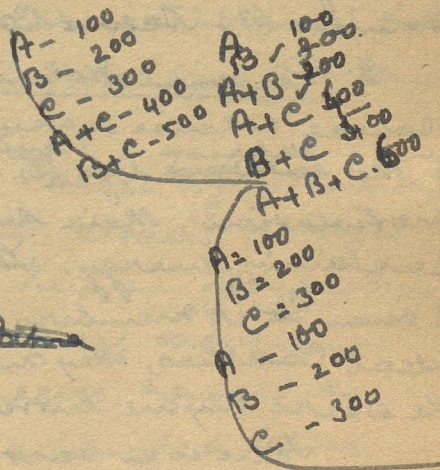 A - 100
B - 200
C - 300
A+C - 400
B+C - 500
A 100
B 200.
A+B 300
A+C 400
B+C 500
A+B+C. 600
A = 100
B = 200
C = 300
A - 100
B - 200
C - 300